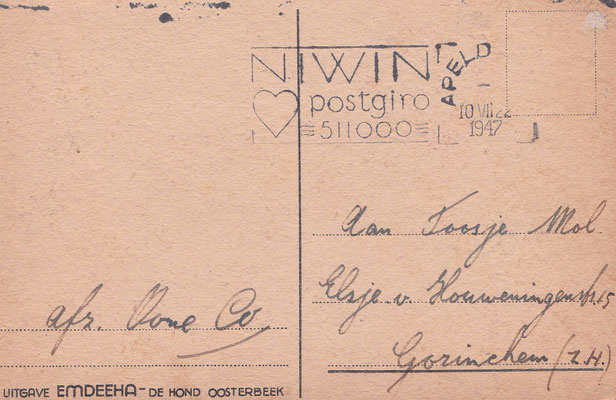 NIWIN
postgiro
511000
APELD
10 VII 22
1947
Aan Toosje Mol.
Elsje v. Houweningenstr. 25
Gorinchem (Z.H.)
afz. Oome Co
UITGAVE EMDEEHA - DE HOND OOSTERBEEK